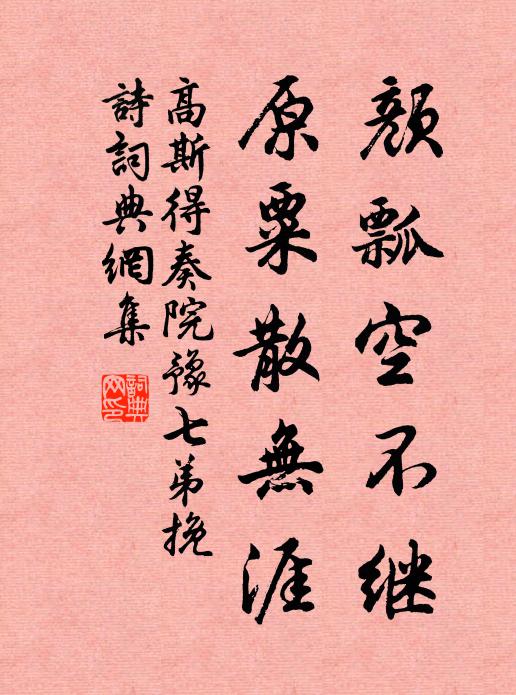 颜瓢空不继
原粟散無涯
高斯得奏院豫七弟挽
詩詞典網集
詞典網印